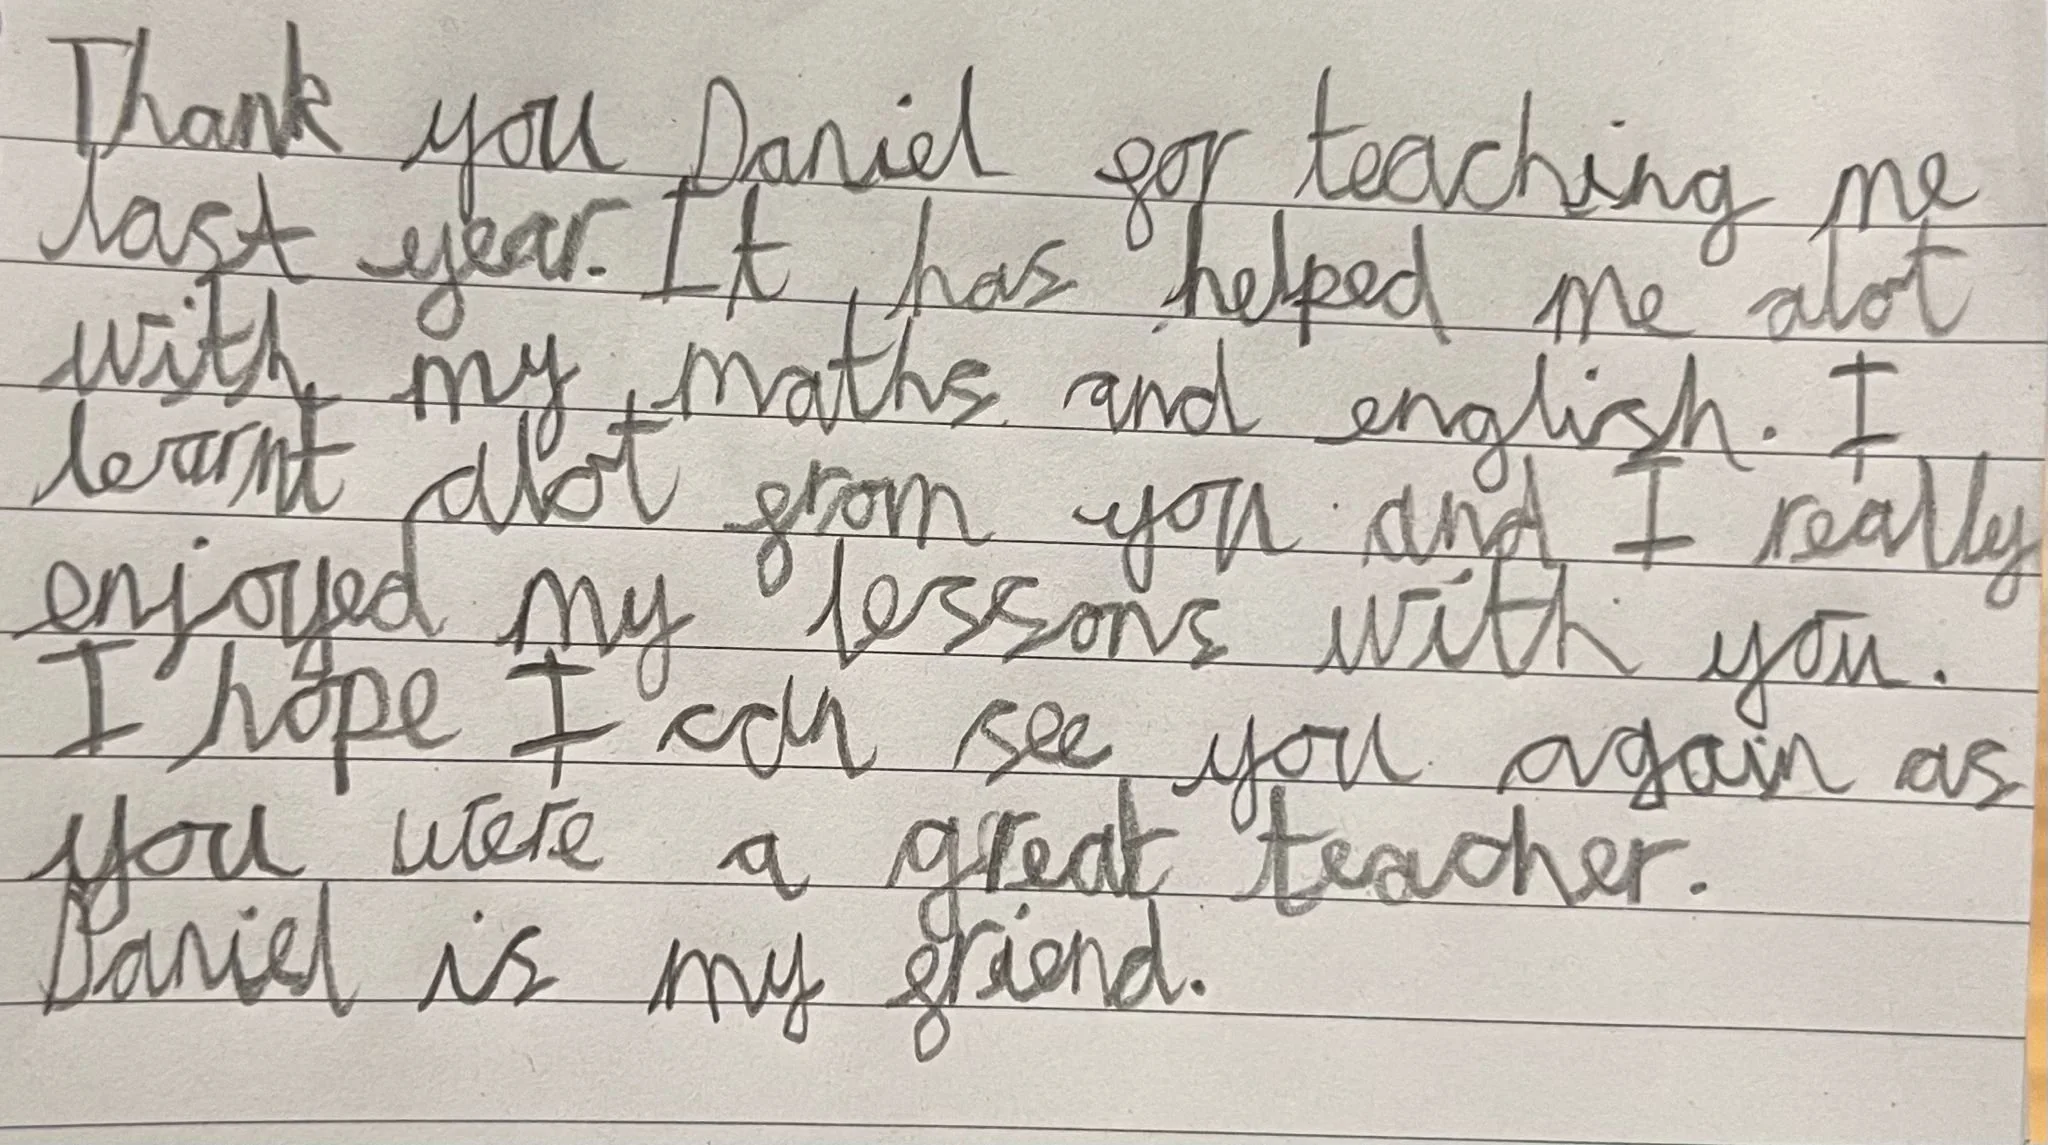 Thank you Daniel for teaching me
last year. It has helped me alot
with my maths and english. I
learnt alot from you and I really
enjoyed my lessons with you.
I hope I can see you again as
you were a great teacher.
Daniel is my friend.